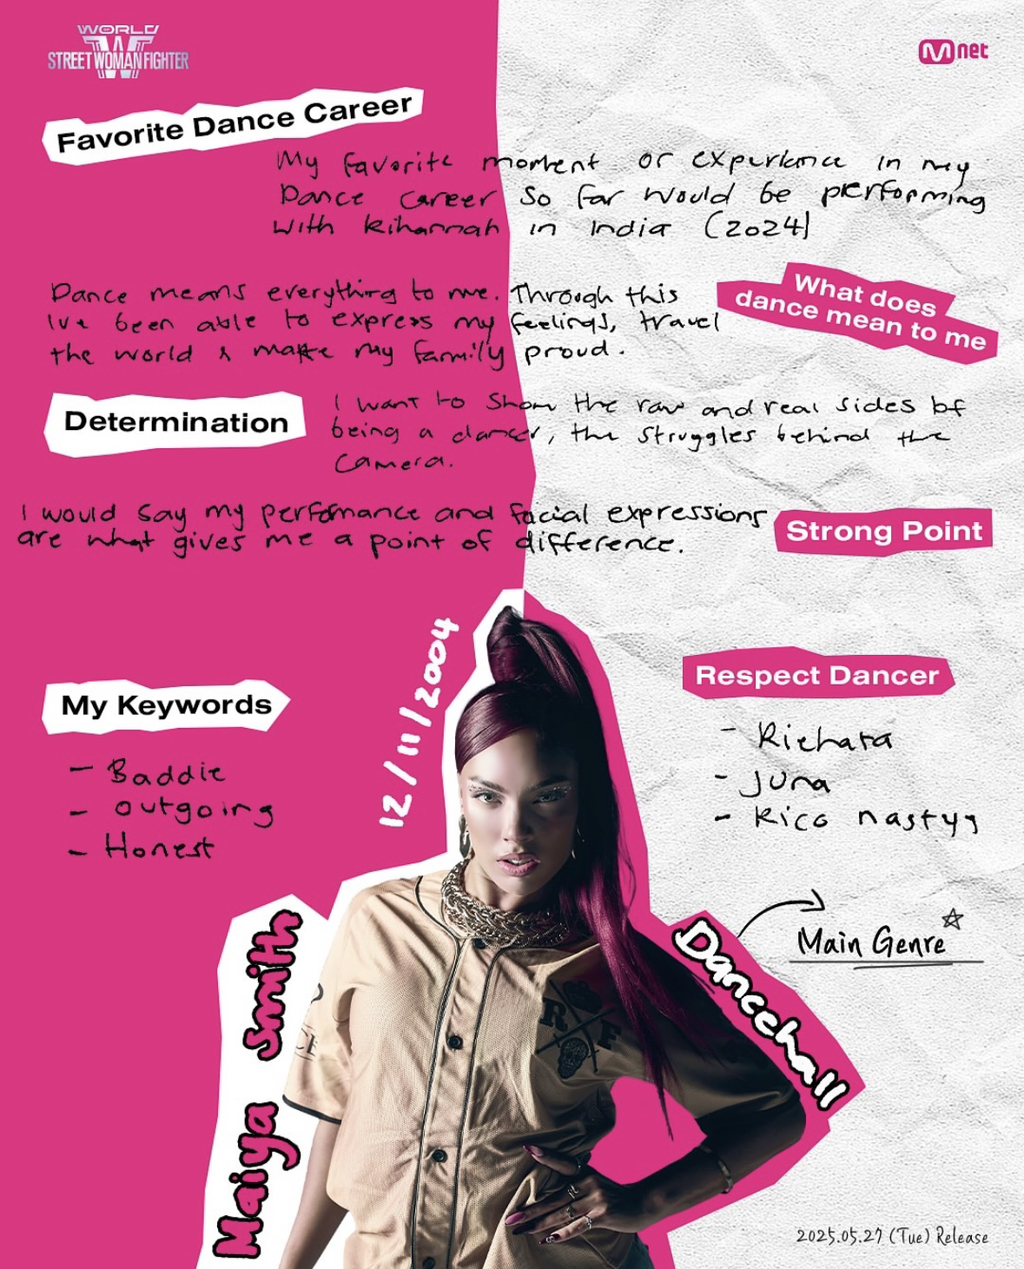 WORLD
W
STREET WOMAN FIGHTER
Mnet
Favorite Dance Career
My favorite moment or experience in my
Dance career so far would be performing
with Rihannah in India (2024)
Dance means everything to me. Through this
Ive been able to express my feelings, travel
the world & make my family proud.
What does
dance mean to me
Determination
I want to show the raw and real sides of
being a dancer, the struggles behind the
camera.
I would say my performance and facial expressions
are what gives me a point of difference.
Strong Point
12/11/2004
My Keywords
- Baddie
- outgoing
- Honest
Respect Dancer
- Riehata
- Juna
- Rico nastyy
Main Genre
Dancehall
Maiya Smith
2025.05.27 (Tue) Release